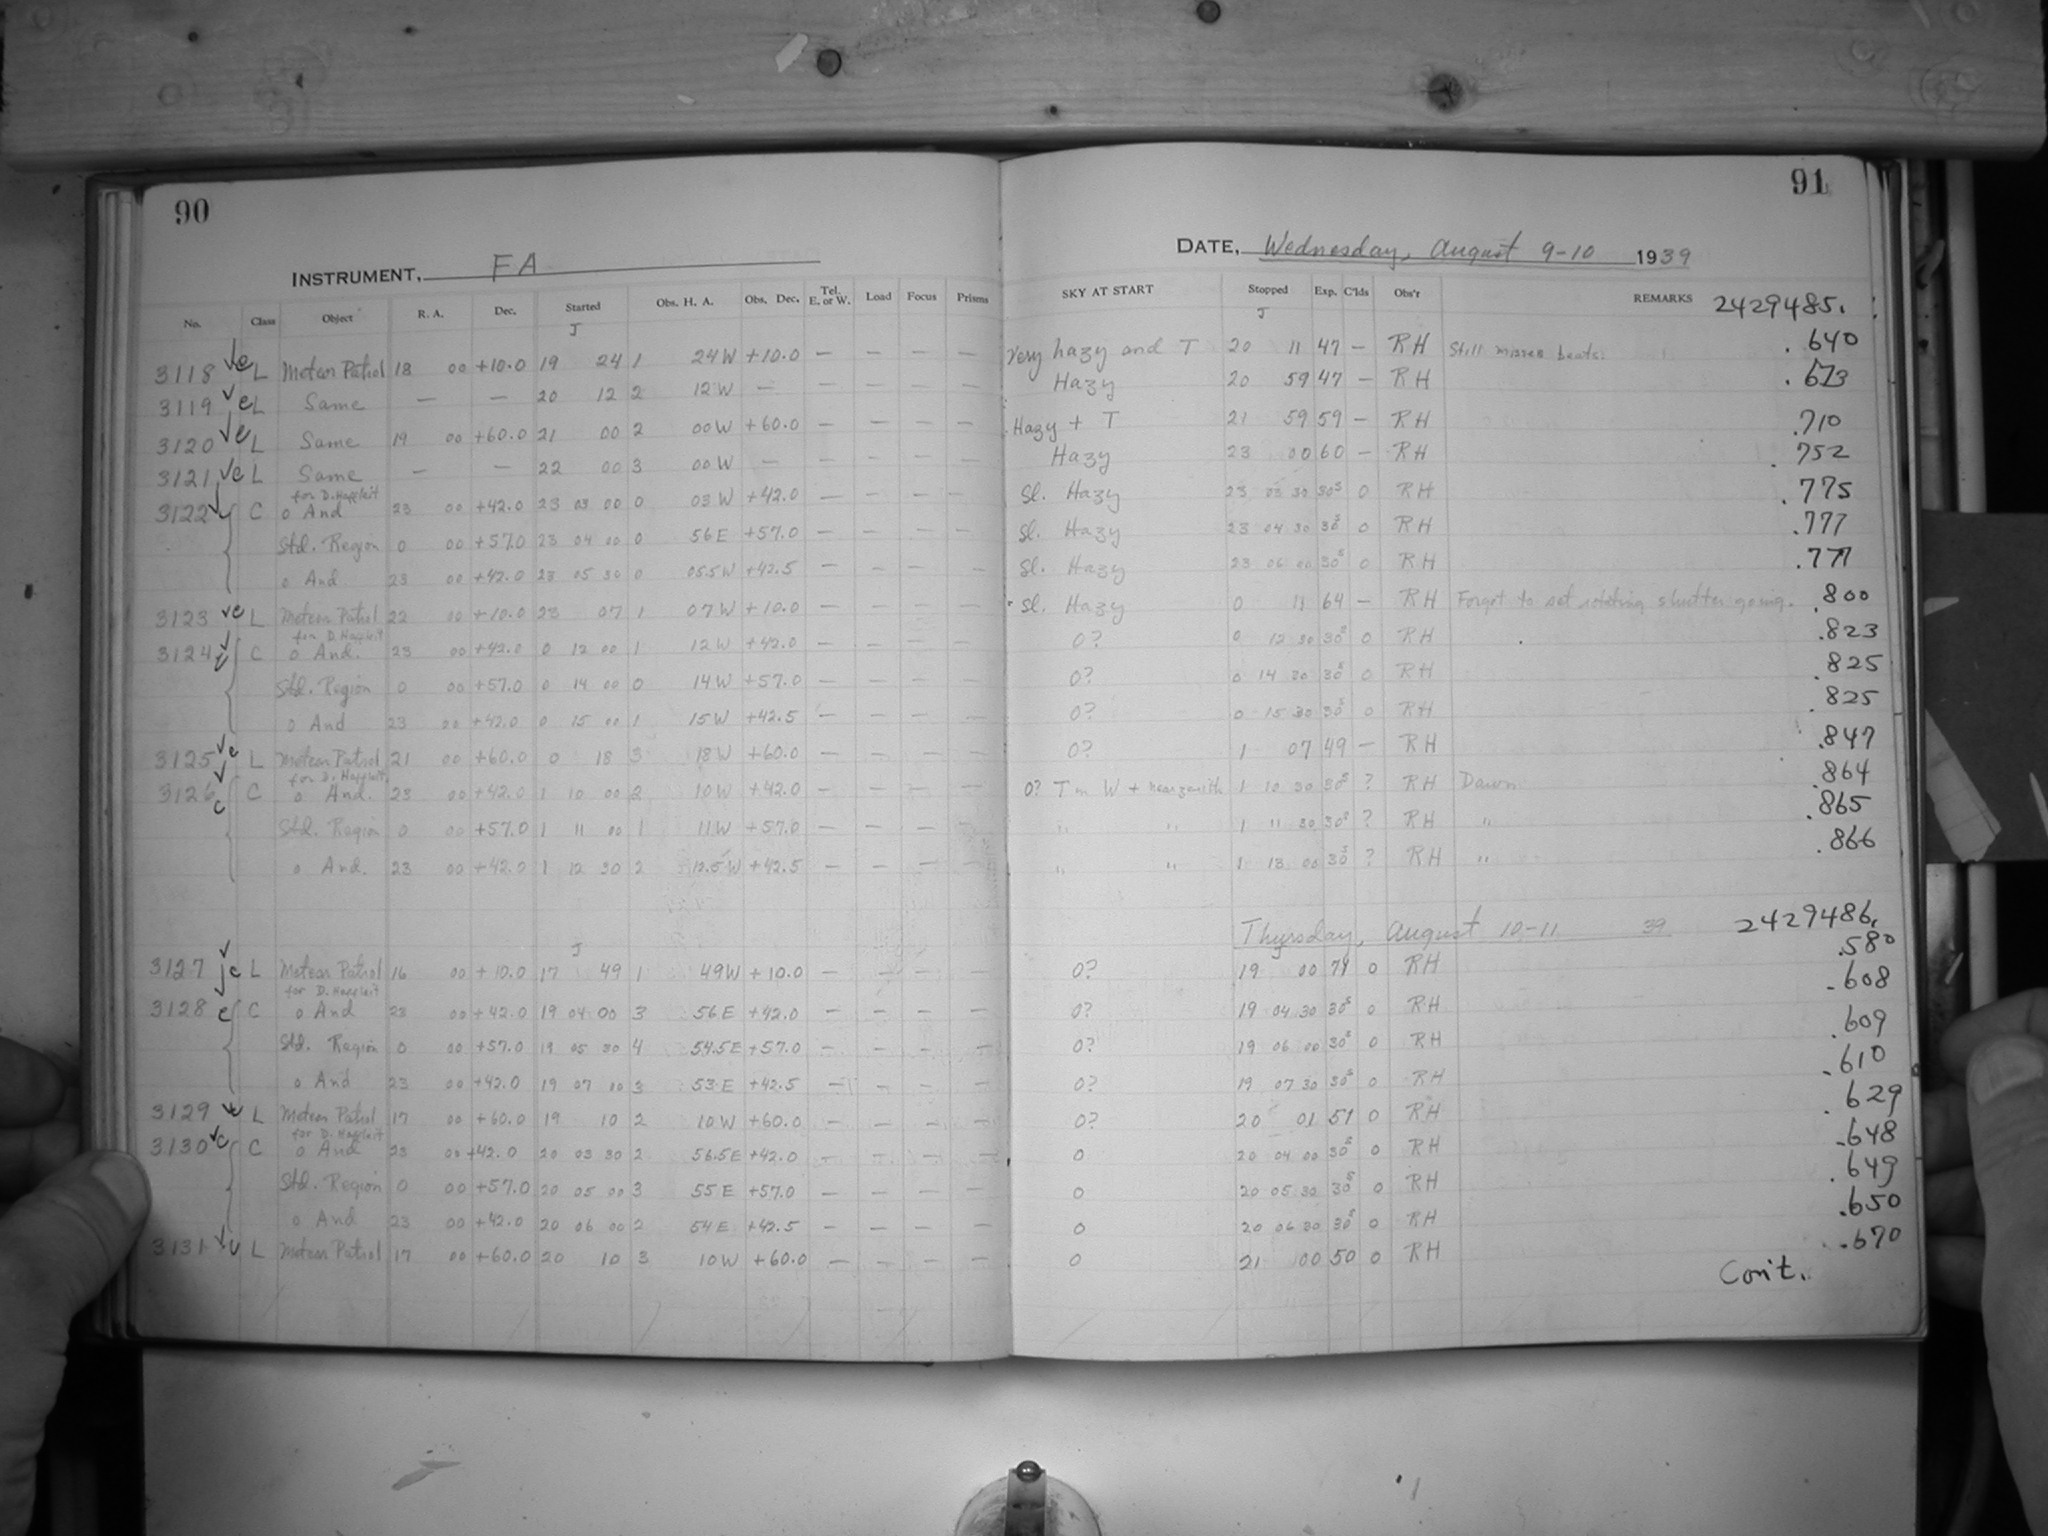 90
INSTRUMENT, FA
No. Class Object R. A. Dec. Started Obs. H. A. Obs. Dec. Tel. E. or W. Load Focus Prisms
J
3118 L Meteor Patrol 18 00 +10.0 19 24 1 24 W +10.0 — — — —
3119 L Same — — 20 12 2 12 W — — — — —
3120 L Same 19 00 +60.0 21 00 2 00 W +60.0 — — — —
3121 L Same — — 22 00 3 00 W — — — — —
for D. Hoffleit
3122 C o And 23 00 +42.0 23 03 00 0 03 W +42.0 — — — —
Std. Region 0 00 +57.0 23 04 00 0 56 E +57.0 — — — —
o And 23 00 +42.0 23 05 30 0 05.5 W +42.5 — — — —
3123 L Meteor Patrol 22 00 +10.0 23 07 1 07 W +10.0 — — — —
for D. Hoffleit
3124 C o And. 23 00 +42.0 0 12 00 1 12 W +42.0 — — — —
Std. Region 0 00 +57.0 0 14 00 0 14 W +57.0 — — — —
o And 23 00 +42.0 0 15 00 1 15 W +42.5 — — — —
3125 L Meteor Patrol 21 00 +60.0 0 18 3 18 W +60.0 — — — —
for D. Hoffleit
3126 C o And. 23 00 +42.0 1 10 00 2 10 W +42.0 — — — —
Std. Region 0 00 +57.0 1 11 00 1 11 W +57.0 — — — —
o And. 23 00 +42.0 1 12 30 2 12.5 W +42.5 — — — —
J
3127 L Meteor Patrol 16 00 +10.0 17 49 1 49 W +10.0 — — — —
for D. Hoffleit
3128 C o And 23 00 +42.0 19 04 00 3 56 E +42.0 — — — —
Std. Region 0 00 +57.0 19 05 30 4 54.5 E +57.0 — — — —
o And 23 00 +42.0 19 07 00 3 53 E +42.5 — — — —
3129 L Meteor Patrol 17 00 +60.0 19 10 2 10 W +60.0 — — — —
for D. Hoffleit
3130 C o And 23 00 +42.0 20 03 30 2 56.5 E +42.0 — — — —
Std. Region 0 00 +57.0 20 05 00 3 55 E +57.0 — — — —
o And 23 00 +42.0 20 06 00 2 54 E +42.5 — — — —
3131 L Meteor Patrol 17 00 +60.0 20 10 3 10 W +60.0 — — — —
91
DATE, Wednesday, August 9-10 1939
SKY AT START Stopped Exp. C'lds Obs'r REMARKS 2429485.
J
Very hazy and T 20 11 47 — RH Still misses beats. .640
Hazy 20 59 47 — RH .673
Hazy + T 21 59 59 — RH .710
Hazy 23 00 60 — RH .752
Sl. Hazy 23 03 30 30s 0 RH .775
Sl. Hazy 23 04 30 30s 0 RH .777
Sl. Hazy 23 06 00 30s 0 RH .777
Sl. Hazy 0 11 64 — RH Forgot to set rotating shutter going. .800
0? 0 12 30 30s 0 RH .823
0? 0 14 30 30s 0 RH .825
0? 0 15 30 30s 0 RH .825
0? 1 07 49 — RH .847
0? T in W + near zenith 1 10 30 30s ? RH Dawn .864
" " 1 11 30 30s ? RH " .865
" " 1 13 00 30s ? RH " .866
Thursday, August 10-11 39 2429486.
J
0? 19 00 71 0 RH .580
0? 19 04 30 30s 0 RH .608
0? 19 06 00 30s 0 RH .609
0? 19 07 30 30s 0 RH .610
0? 20 01 51 0 RH .629
0 20 04 00 30s 0 RH .648
0 20 05 30 30s 0 RH .649
0 20 06 30 30s 0 RH .650
0 21 00 50 0 RH .670
Con't.